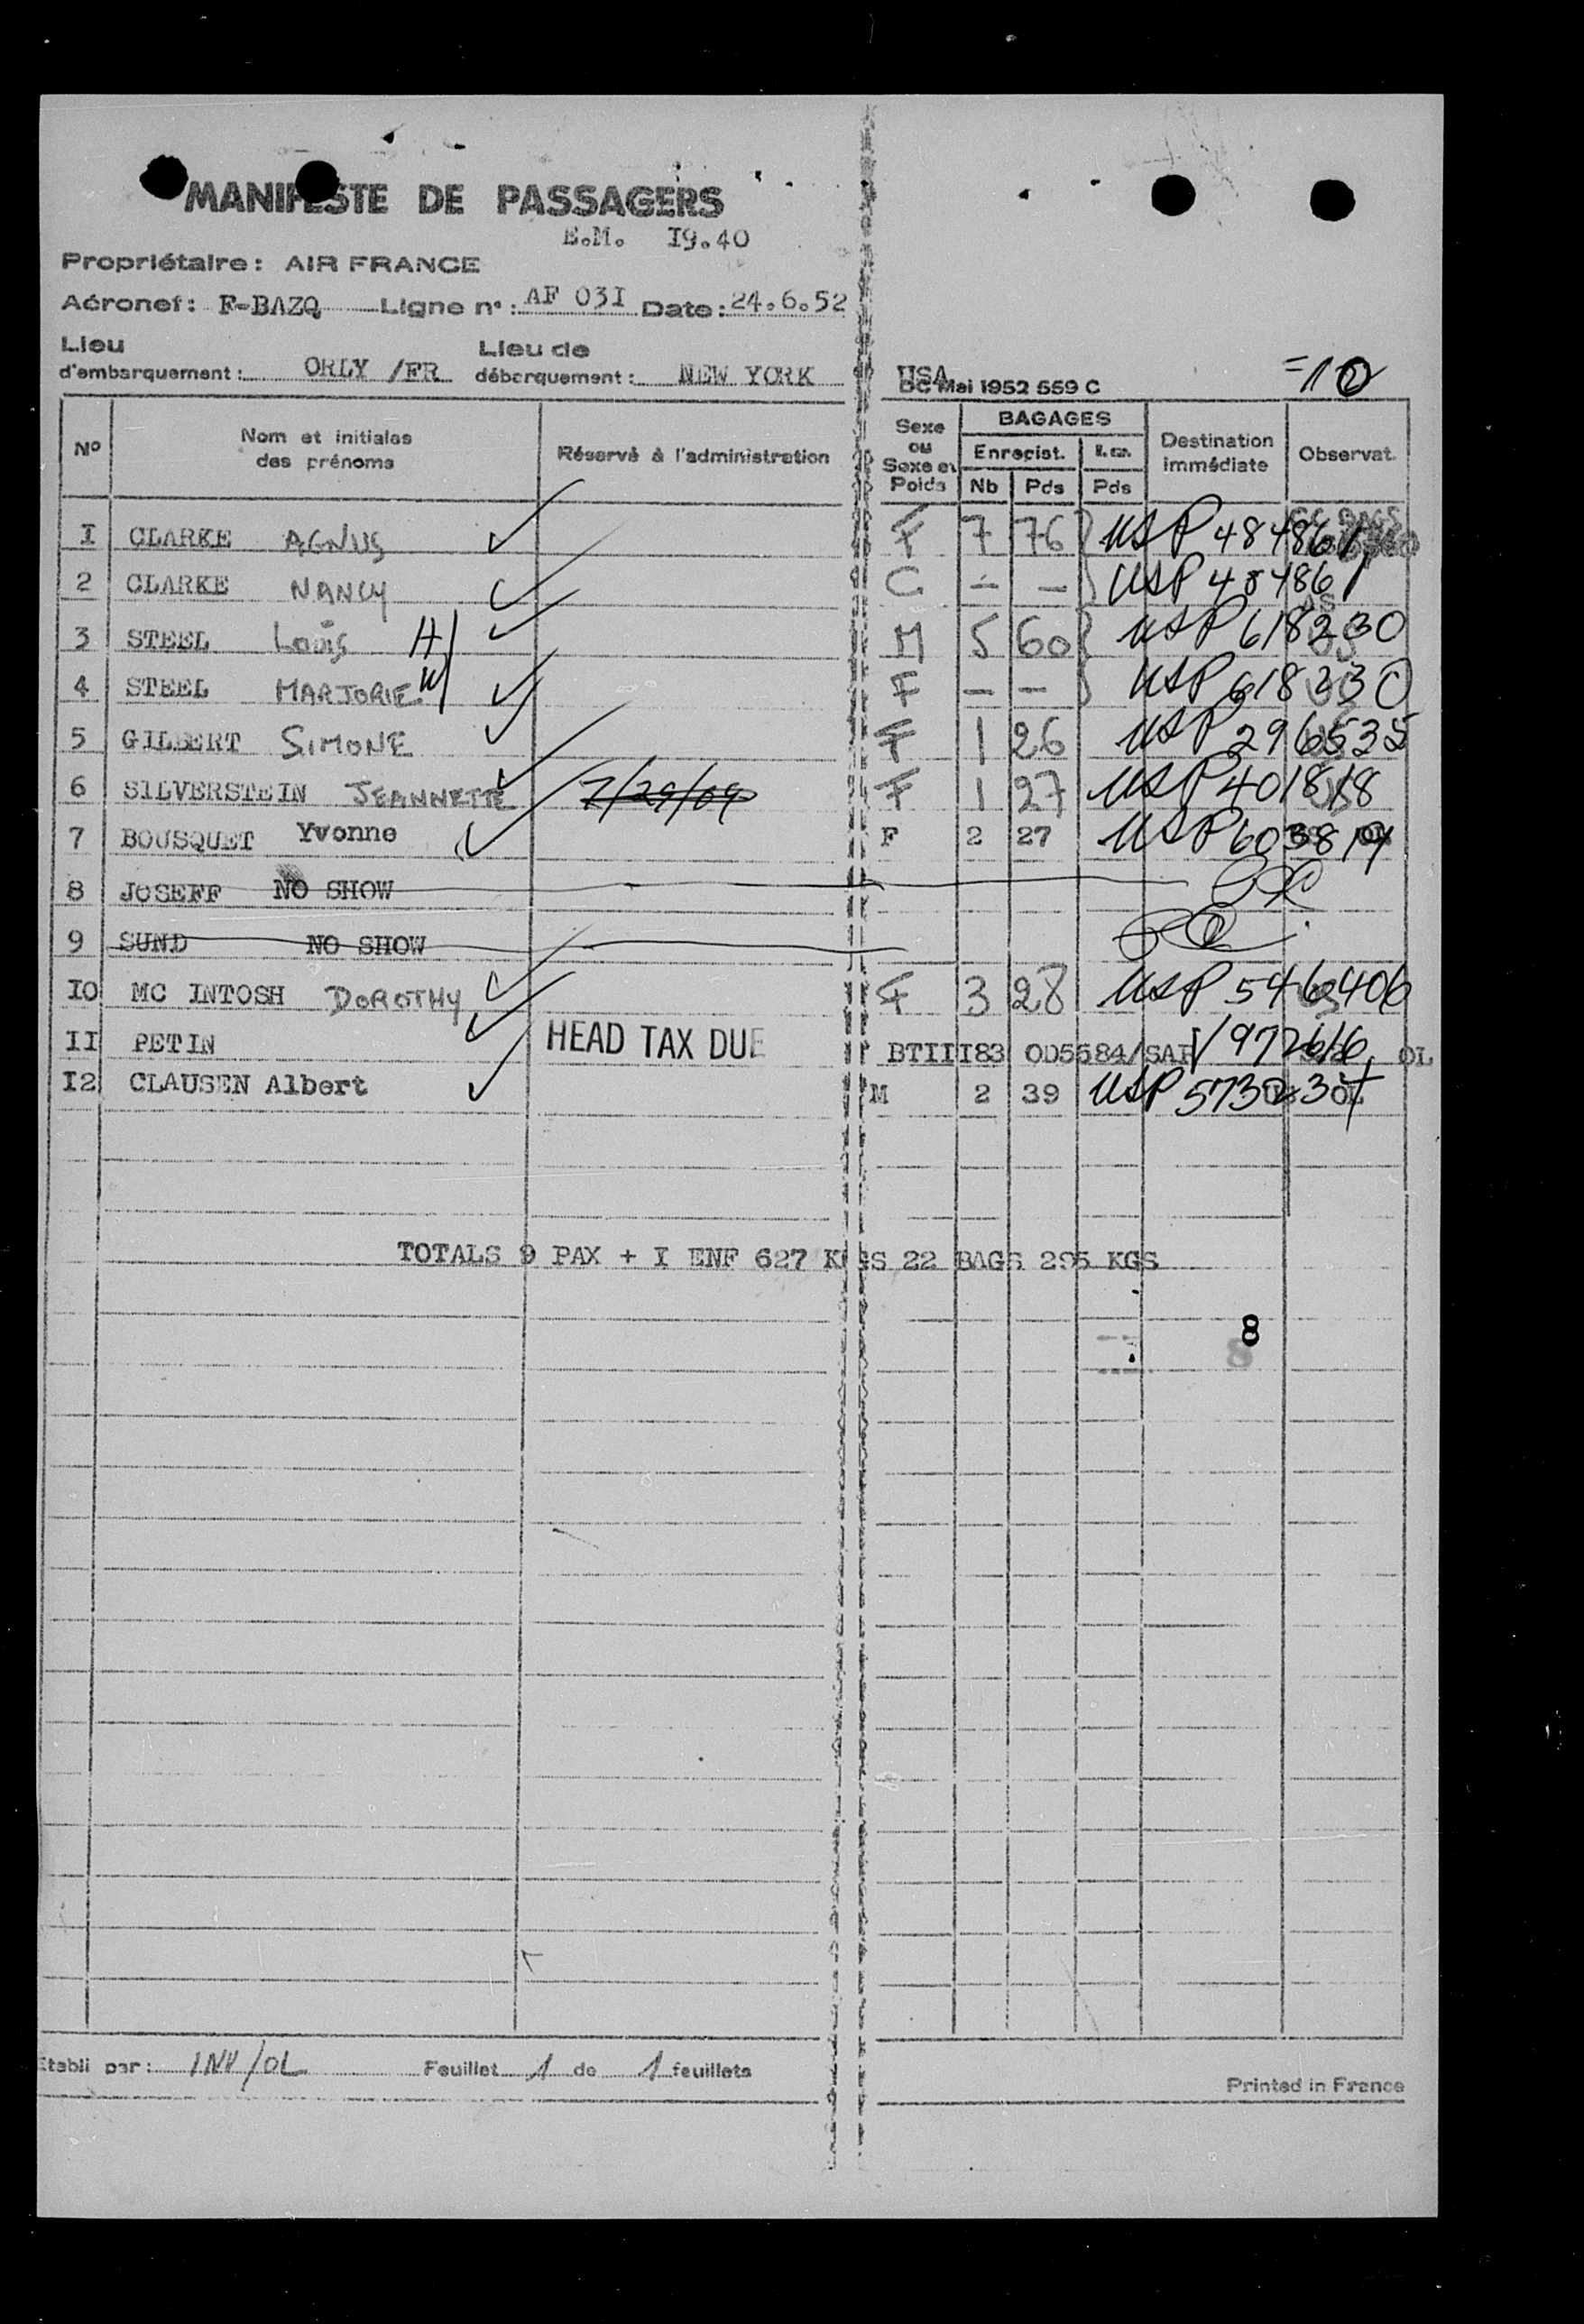 MANIFESTE DE PASSAGERS
E.M. I9.40
Propriétaire: AIR FRANCE
Aéronef: F-BAZQ Ligne n°: AF 03I Date: 24.6.52
Lieu d'embarquement: ORLY /FR Lieu de débarquement: NEW YORK USA
DC Mai 1952 559 C
=10
N° Nom et initiales des prénoms Réservé à l'administration Sexe ou Sexe et Poids BAGAGES Enregist. Nb Pds Pds Destination immédiate Observat.
I CLARKE AGNUS F 7 76 USP 484861
2 CLARKE NANCY C — — USP 484861
3 STEEL Louis H M 5 60 USP 618230
4 STEEL MARJORIE W F — — USP 618230
5 GILBERT SIMONE F 1 26 USP 296535
6 SILVERSTEIN JEANNETTE 7/29/09 F 1 27 USP 401818
7 BOUSQUET Yvonne F 2 27 USP 603819
8 JOSEFF NO SHOW
9 SUND NO SHOW
I0 MC INTOSH DOROTHY F 3 28 USP 546406
II PETIN HEAD TAX DUE BTIII83 OD5584/SAF V972616 OL
I2 CLAUSEN Albert M 2 39 USP 573023 OL
TOTALS 9 PAX + I ENF 627 KGS 22 BAGS 295 KGS
8
8
Etabli par: INV/OL Feuillet 1 de 1 feuillets
Printed in France